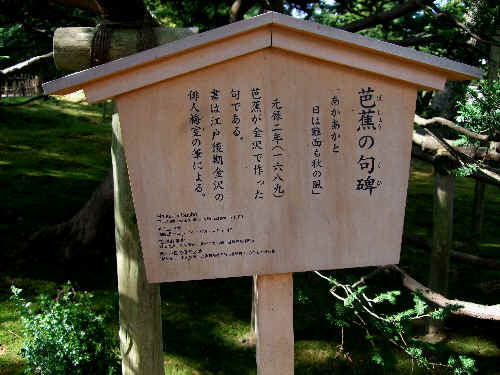 芭蕉の句碑
ばしょう
くひ
「あかあかと
日は難面も秋の風」
元禄二年(一六八九)
芭蕉が金沢で作った
句である。
書は江戸後期金沢の
俳人梅室の筆による。